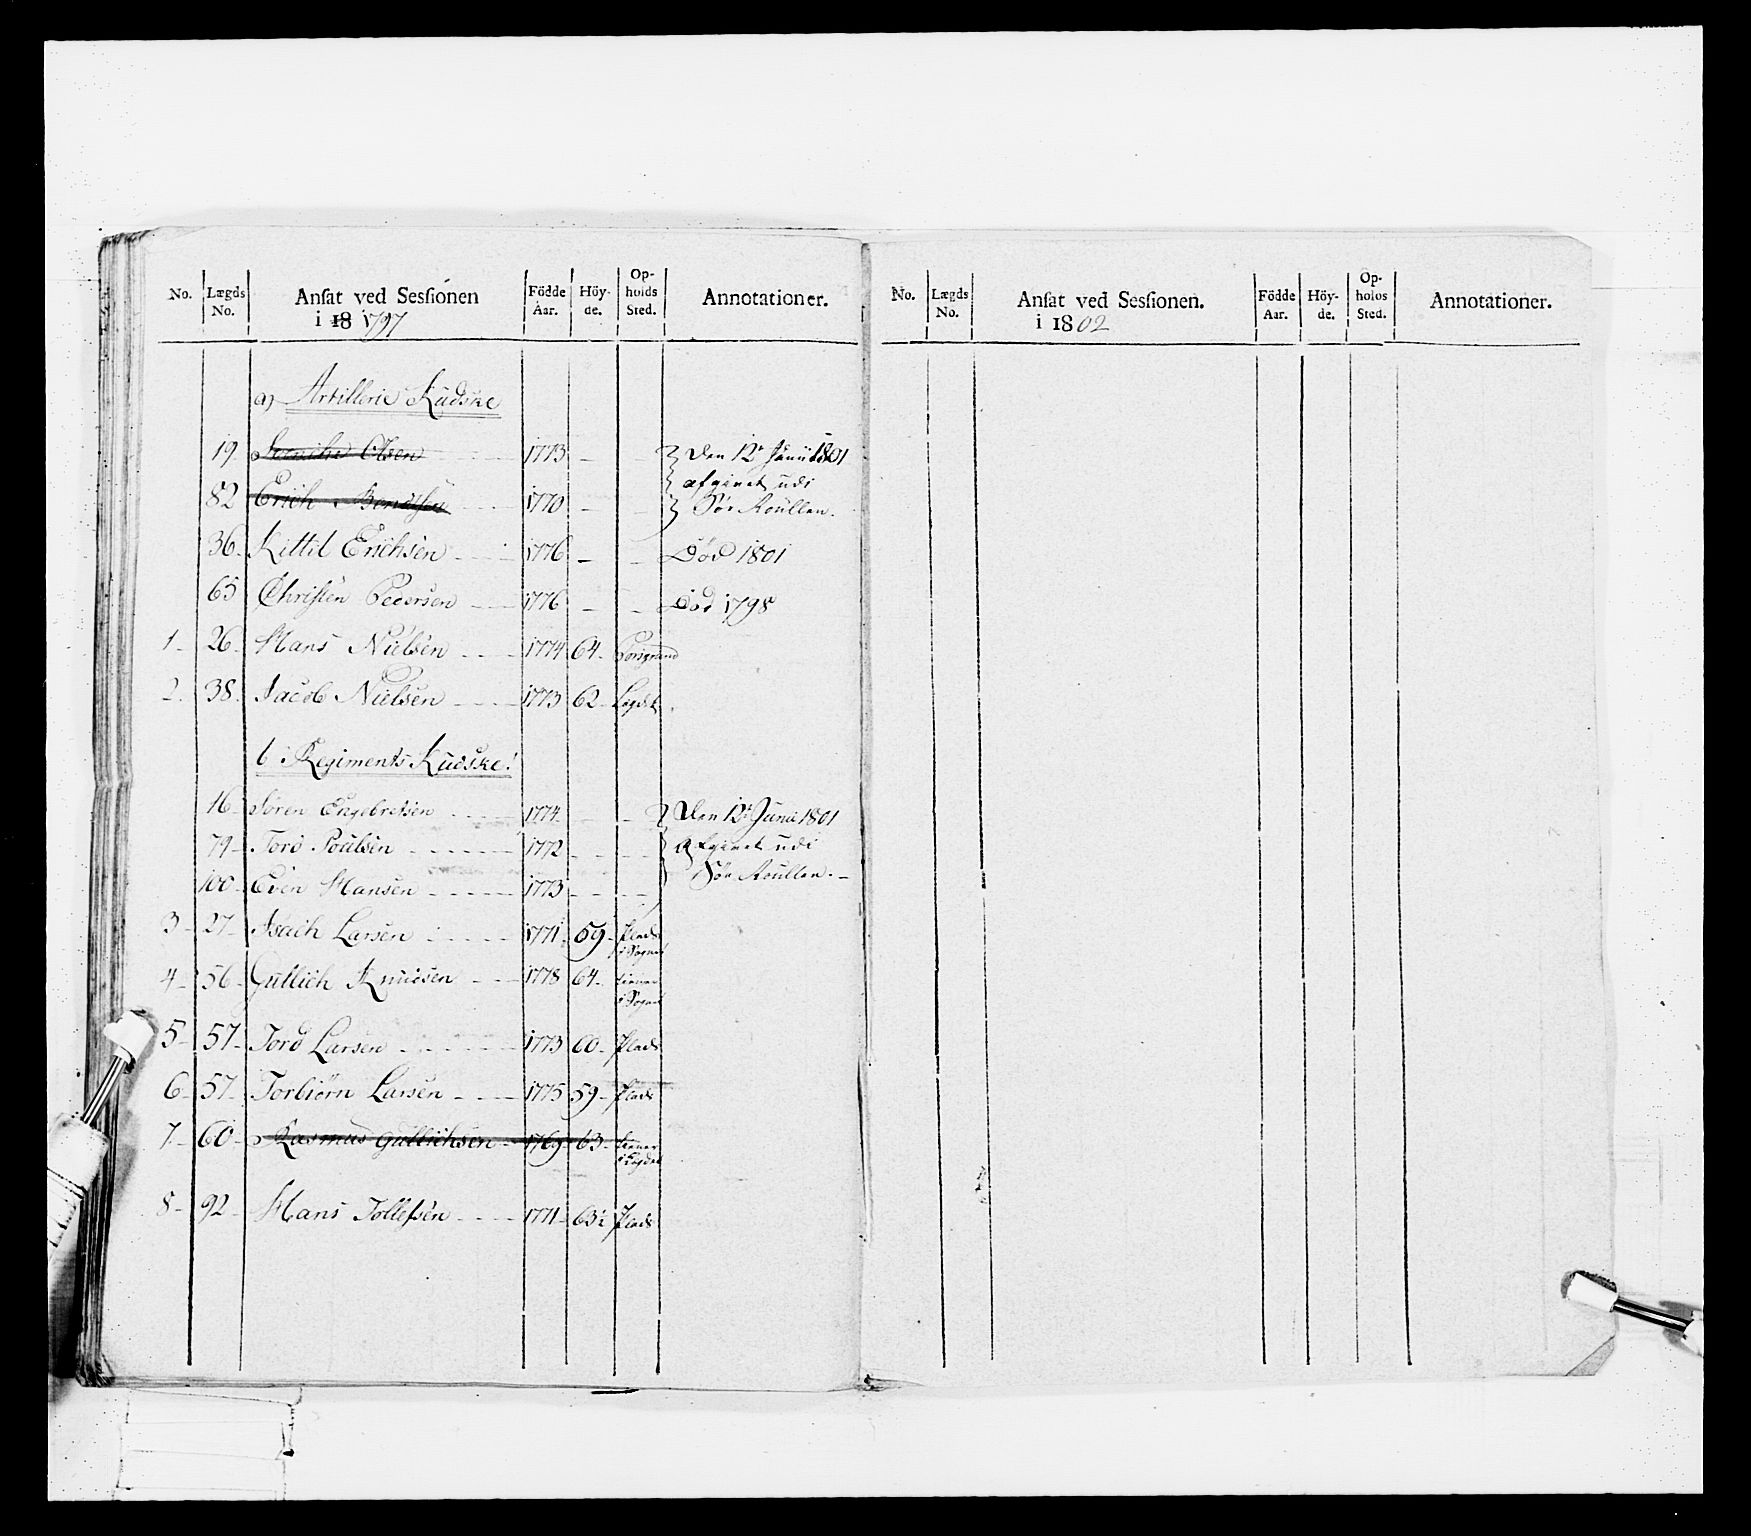 No. | Lægds No. | Ansat ved Sessionen i 18 1797 | Födde Aar. | Höy-de. | Op-holds Sted. | Annotationer.
a) Artillerie Kudske
19. Olsen 1773 - - Den 12te Junii 1801
afgivet udi
82 Erich Bendtsen 1770 - - Søe Roullen.
36. Kittil Erichsen 1776 - - Død 1801
65 Christen Pedersen 1776 - - Død 1798
1 - 26 - Hans Nielsen 1774 64 - Porsgrund
2 - 38 - Jacob Nielsen 1773 62 - Lægdet
b Regiments Kudske
16 - Søren Engebretsen 1774 - - Den 12te Junii 1801
79 - Tord Poulsen 1772 - - afgivet udi
100 - Even Hansen 1773 - - Søe Roullen. -
3 - 27 - Isach Larsen 1771 59 - Plads
i Sognet
4 - 56 - Gullich Knudsen 1778 64 - tiener
i Sognet
5 - 57 - Tord Larsen 1773 60 - Plads
6 - 57 - Torbiørn Larsen 1775 59 - Plads
7 - 60 - Rasmus Gullichsen 1769 63 - tiener
i Lægdet
8 - 92 - Hans Tollefsen 1771 63½ Plads
No. | Lægds No. | Ansat ved Sessionen. i 1802 | Födde Aar. | Höy-de. | Op-holds Sted. | Annotationer.